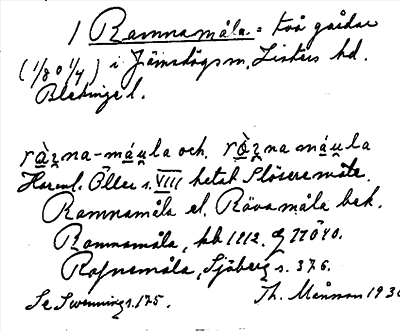 1 Ramnamåla = två gårdar
(1/8 o 1/4) i Jämshögs sn, Listers hd.
Blekinge l.
ràz̯na-máu̯la och ròz̯na máu̯la
Öller s. VIII hetat Slösere måle.
Ramnamåla el. Rävamåla bek.
Ramnamåla, kb 1212.
Rafnemåla, Sjöberg s. 376.
Se Swenning s. 175. Th. Månsson 193